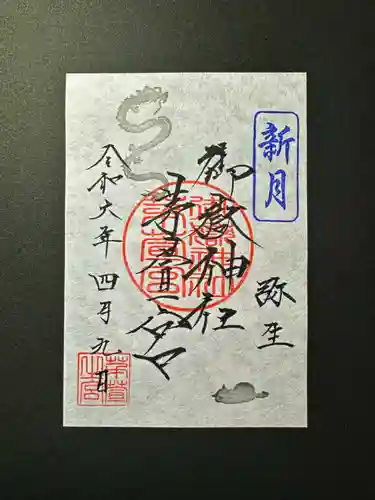 新月
弥生
御嶽神社
茅萱宮
令和六年 四月九日